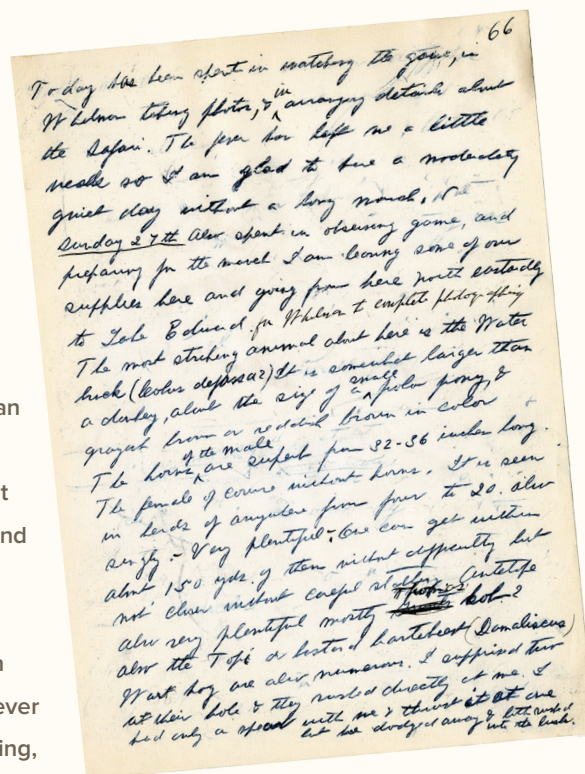 66
To day has been spent in watching the game, in
Whelmer taking photos, & in arranging details about
the Safari. The fever has left me a little
weak so I am glad to have a moderately
quiet day without a long march.
Sunday 27th Also spent in observing game, and
preparing for the march I am leaving some of our
supplies here and going from here north eastardly
to Lake Edward for Whelmer to complete photographing
The most striking animal about here is the Water
buck (Cobus defassa?) It is somewhat larger than
a donkey, about the size of a small polo pony, &
grayish brown or reddish brown in color
The horns of the male are superb from 32-36 inches long.
The female of course without horns. It is seen
in herds of anywhere from four to 20. also
singly - Very plentiful - One can get within
about 150 yds. of them without difficulty but
not closer without careful stalking. Antelope
also very plentiful mostly kob?
also the Topi or bastard hartebeest (Damaliscus)
Wart hog are also numerous. I surprised two
at their hole & they rushed directly at me. I
had only a spear with me & thrust it at one
but he dodged away & both rushed
into the bush.
an
t
nd
n
ever
ing,